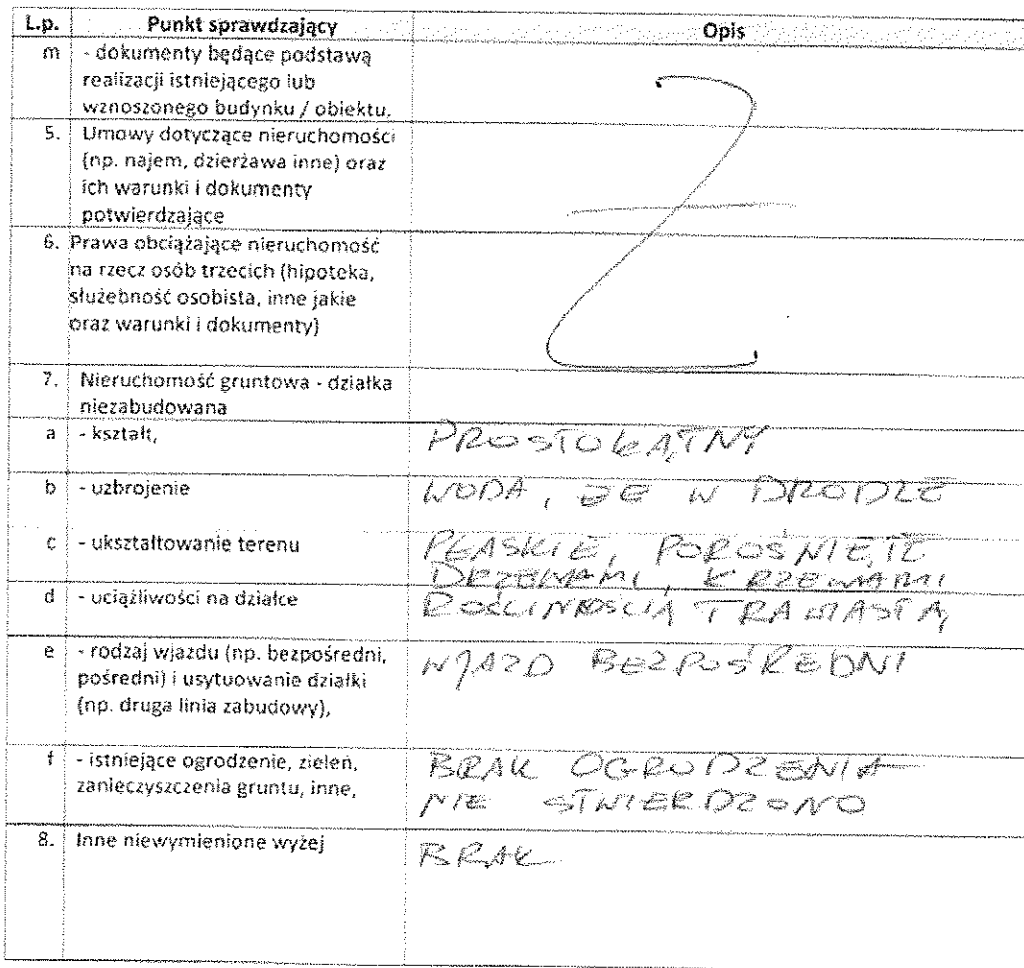 L.p. Punkt sprawdzający Opis
m - dokumenty będące podstawą
realizacji istniejącego lub
wznoszonego budynku / obiektu,
5. Umowy dotyczące nieruchomości
(np. najem, dzierżawa inne) oraz
ich warunki i dokumenty
potwierdzające
6. Prawa obciążające nieruchomość
na rzecz osób trzecich (hipoteka,
służebność osobista, inne jakie
oraz warunki i dokumenty)
7. Nieruchomość gruntowa - działka
niezabudowana
a - kształt, PROSTOKĄTNY
b - uzbrojenie WODA, EE W DRODZE
c - ukształtowanie terenu PŁASKIE, POROŚNIĘTE
DRZEWAMI, KRZEWAMI
d - uciążliwości na działce ROŚLINNOŚCIĄ TRAWIASTĄ
e - rodzaj wjazdu (np. bezpośredni, WJAZD BEZPOŚREDNI
pośredni) i usytuowanie działki
(np. druga linia zabudowy),
f - istniejące ogrodzenie, zieleń, BRAK OGRODZENIA
zanieczyszczenia gruntu, inne, NIE STWIERDZONO
8. Inne niewymienione wyżej BRAK